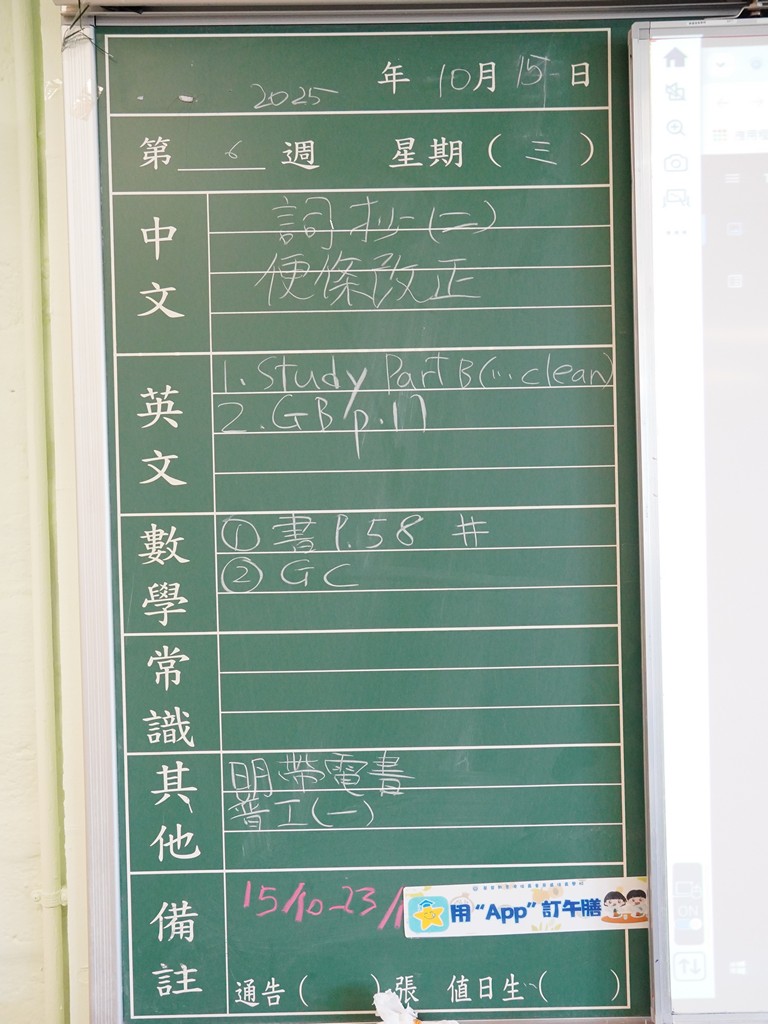 2025 年 10月 15日
第 6 週 星期 ( 三 )
中文
詞抄(二)
便條改正
英文
1. Study Part B (... clean)
2. GB p.17
數學
① 書 P.58 #
② GC
常識
其他
明帶電書
普工(一)
備註
15/10-23/1
用“App”訂午膳
通告 ( ) 張 值日生 ( )
ON